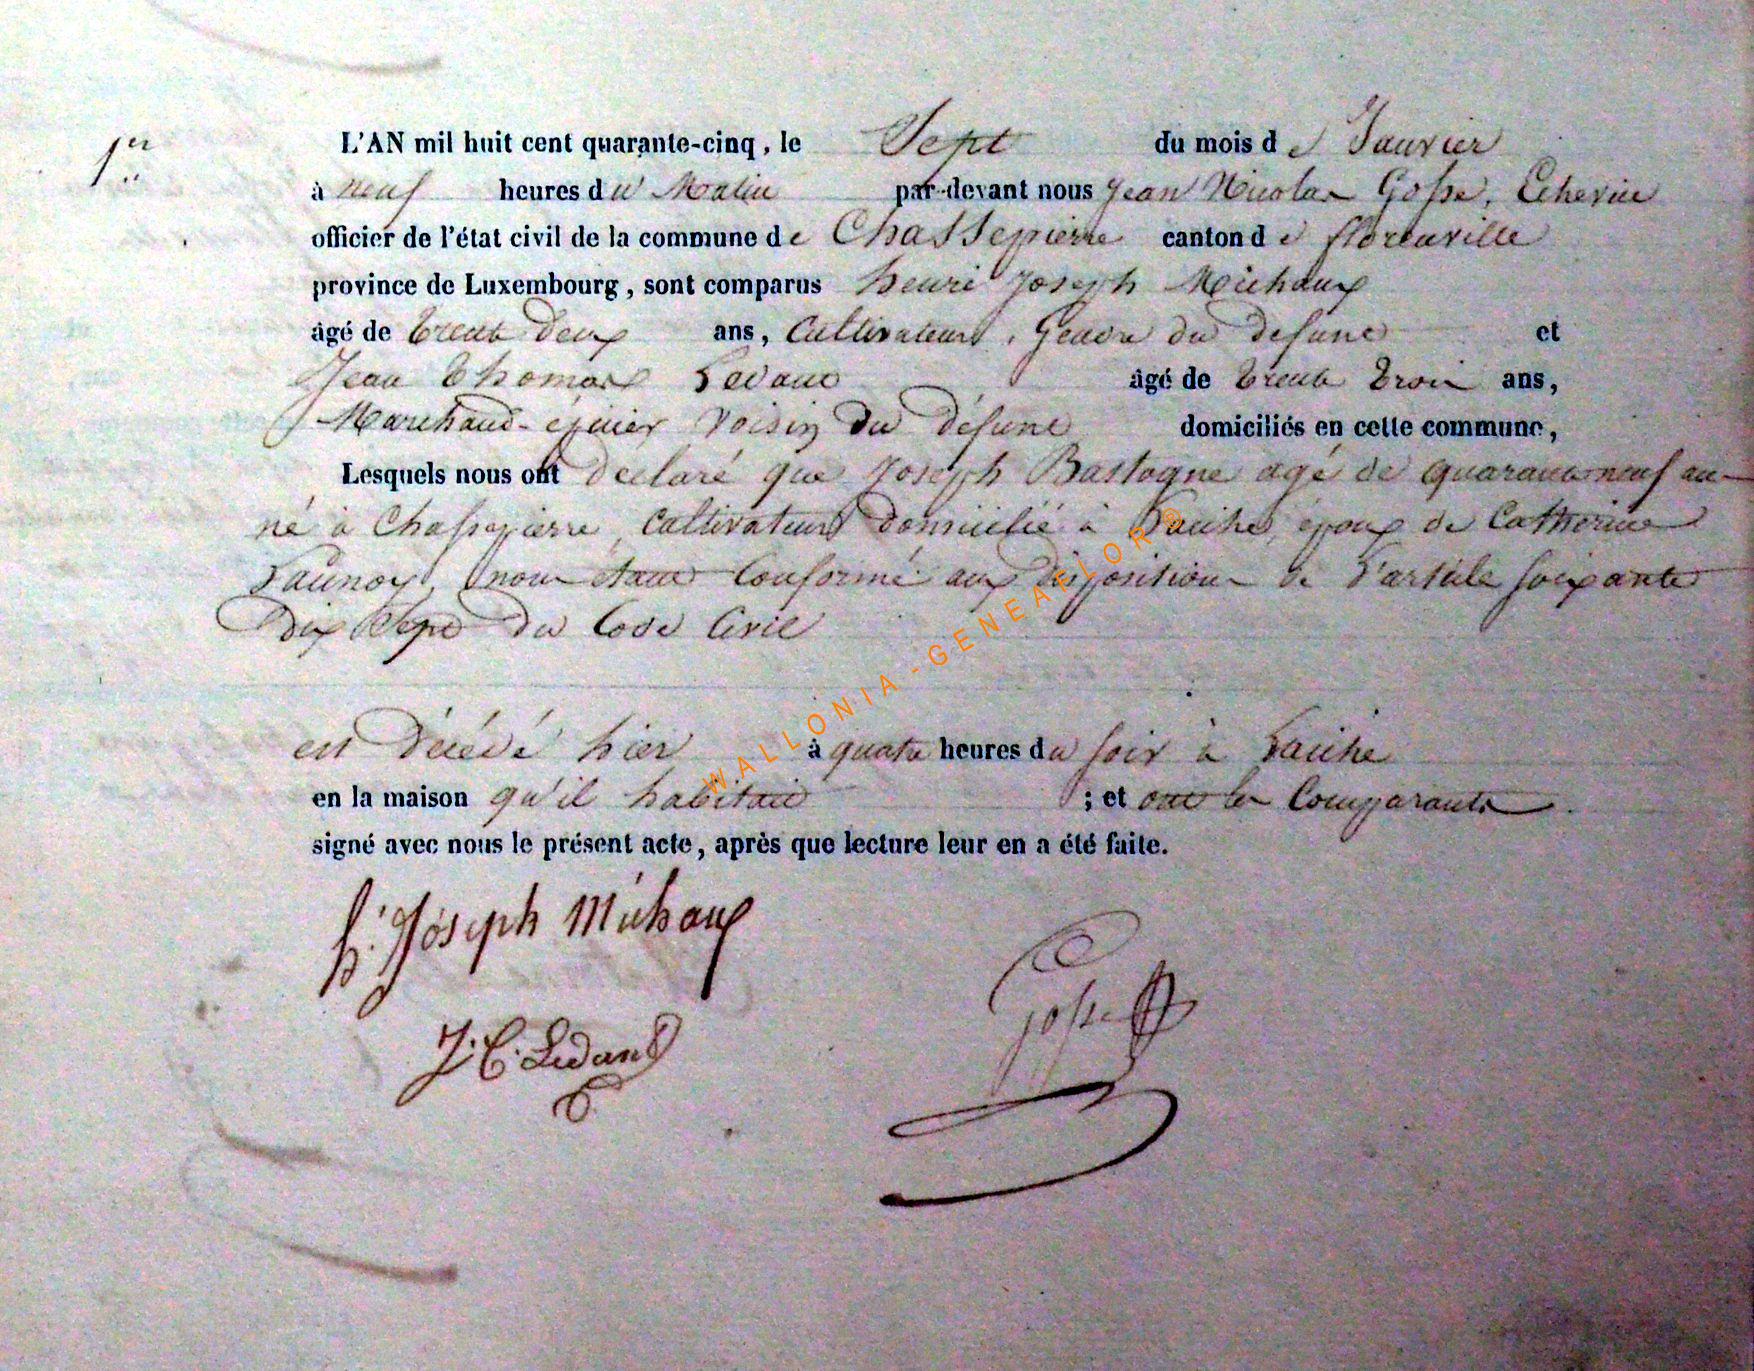 1er
L'AN mil huit cent quarante-cinq, le Sept du mois de Janvier
à neuf heures du Matin par-devant nous Jean Nicolas Gosse, Echevin
officier de l'état civil de la commune de Chassepierre canton de florenville
province de Luxembourg, sont comparus henri Joseph Michaux
âgé de trente deux ans, Cultivateur, Gendre du defunt et
Jean Thomas Ledant âgé de trente trois ans,
Marchand-épicier Voisin du défunt domiciliés en cette commune,
Lesquels nous ont déclaré que Joseph Bastogne agé de quarante neuf ans
né à Chassepierre, cultivateur domicilié à Laiche, époux de Catherine
Launoy, nous étant Conformé aux dispositions de l'article soixante
dix Sept du Code Civil
est décédé hier à quatre heures du soir à Laiche
en la maison qu'il habitait ; et ont les Comparants
signé avec nous le présent acte, après que lecture leur en a été faite.
h. Joseph Michaux
Gosse
J. T. Ledant
WALLONIA - GENEAFLOR®